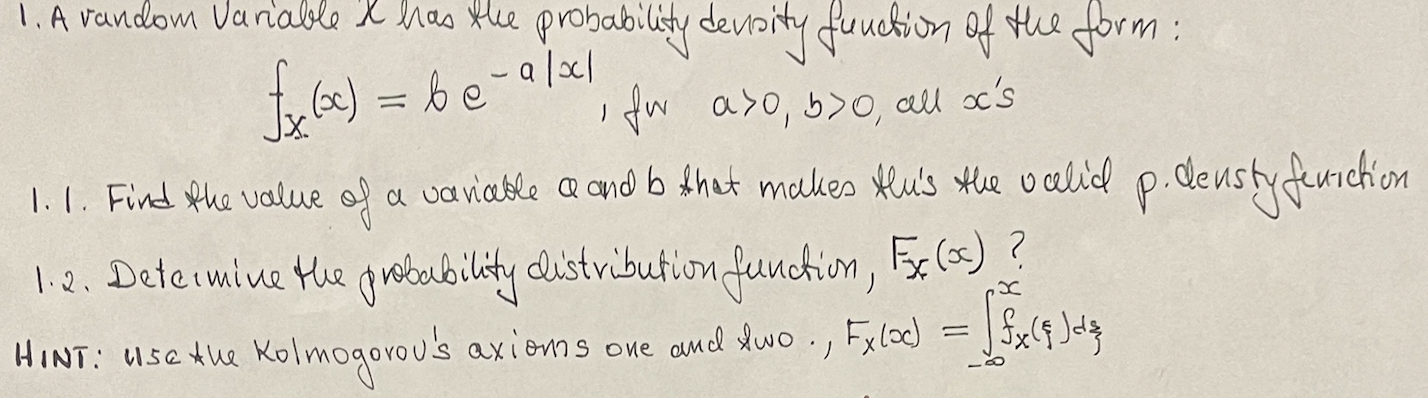 1. A random Variable X has the probability density function of the form :
fₓ(x) = b e^{-a|x|}, for a>0, b>0, all x's
1.1. Find the value of a variable a and b that makes this the valid p. densty function
1.2. Determine the probability distribution function, Fₓ(x) ?
HINT: use the Kolmogorov's axioms one and two ., Fₓ(x) = ∫_{-∞}^{x} fₓ(ξ)dξ